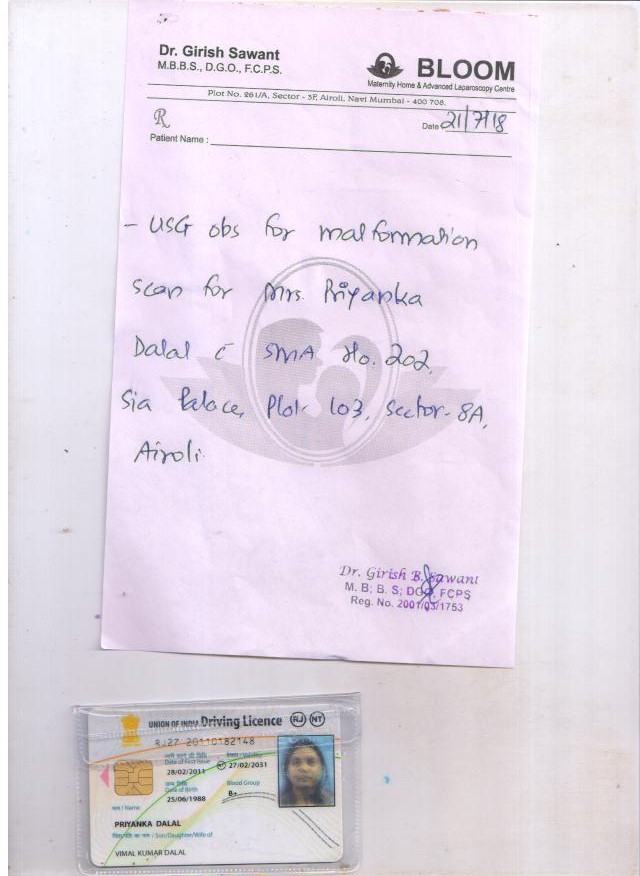 Dr. Girish Sawant
M.B.B.S., D.G.O., F.C.P.S.
BLOOM
Maternity Home & Advanced Laparoscopy Centre
Plot No. 261/A, Sector - 5F, Airoli, Navi Mumbai - 400 708.
Date 21/7/18
Patient Name :
- USG obs for malformation
scan for Mrs. Priyanka
Dalal c̄ SMA Ho. 202,
Sia Palace, Plot 103, Sector-8A,
Airoli.
Dr. Girish B. Sawant
M. B; B. S; DGO, FCPS
Reg. No. 2001/03/1753
UNION OF INDIA Driving Licence RJ NT
RJ27 20110182148
Date of First Issue
28/02/2011 NT 27/02/2031
जन्म तिथि
Date of Birth Blood Group
25/06/1988 B+
नाम / Name
PRIYANKA DALAL
पिता/पति का नाम / Son/Daughter/Wife of
VIMAL KUMAR DALAL